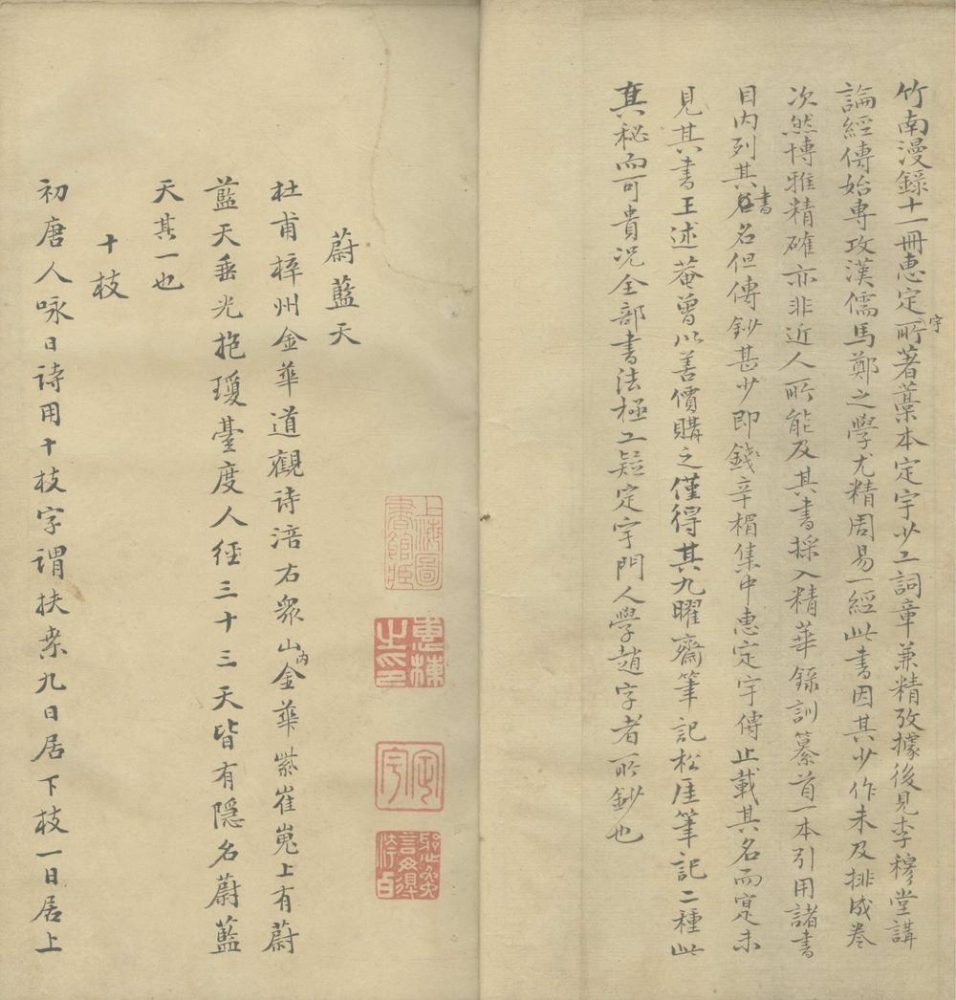 竹南漫錄十一冊惠定宇所著藁本定宇少工詞章兼精攷據後見李穆堂講
論經傳始專攻漢儒馬鄭之學尤精周易一經此書因其少作未及排成卷
次然博雅精確亦非近人所能及其書採入精華錄訓纂首一本引用諸書
目內列其書名但傳鈔甚少即錢辛楣集中惠定宇傳止載其名而寔未
見其書王述菴曾以善價購之僅得其九曜齋筆記松厓筆記二種此
真秘而可貴況全部書法極工疑定宇門人學趙字者所鈔也
蔚藍天
杜甫梓州金華道觀诗涪右衆山內金華紫崔嵬上有蔚
藍天垂光抱瓊臺度人徑三十三天皆有隱名蔚藍
天其一也
十枝
初唐人咏日诗用十枝字谓扶桒九日居下枝一日居上
上海圖書館臧
惠棟之印
定宇